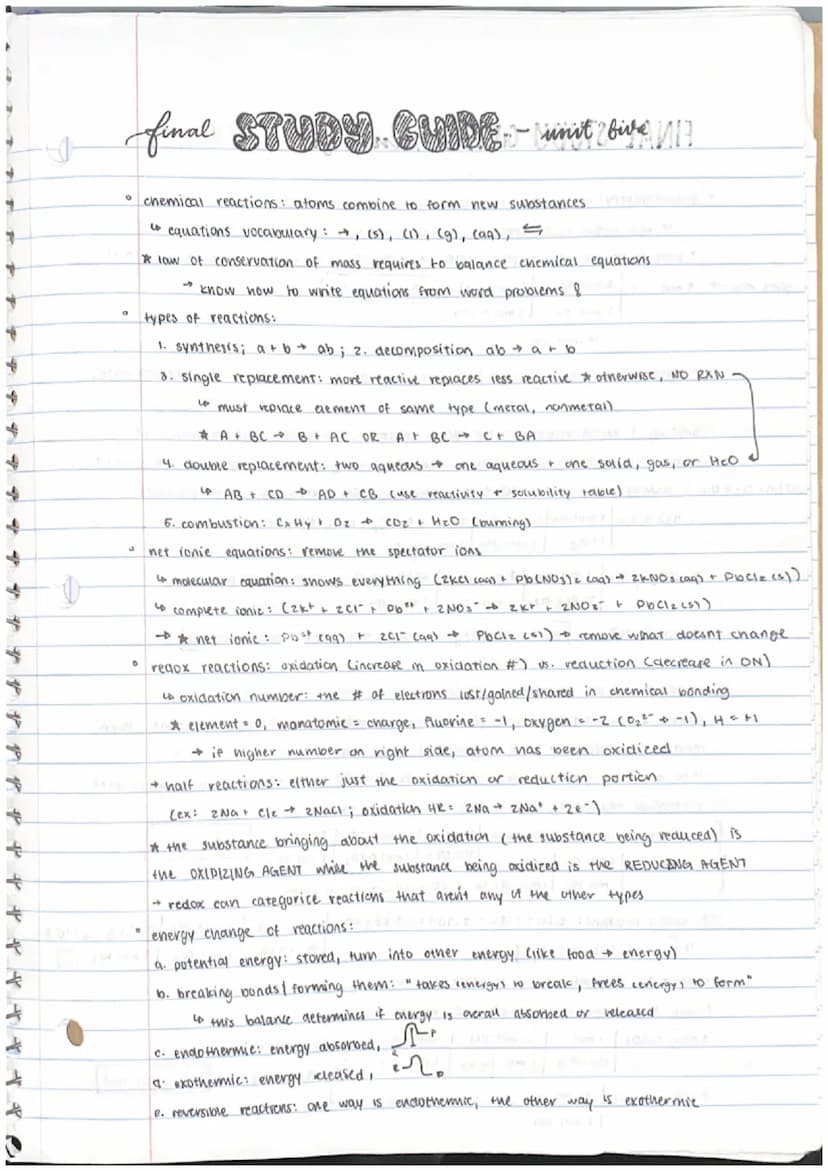 final STUDY GUIDE - unit five
° chemical reactions: atoms combine to form new substances
↳ equations vocabulary: →, (s), (l), (g), (aq), ⇆
* law of conservation of mass requires to balance chemical equations
→ know how to write equations from word problems &
° types of reactions:
1. synthesis; a + b → ab; 2. decomposition ab → a + b
3. single replacement: more reactive replaces less reactive * otherwise, NO RXN
↳ must replace element of same type (metal, nonmetal)
* A + BC → B + AC OR A + BC → C + BA
4. double replacement: two aqueous → one aqueous + one solid, gas, or H2O
↳ AB + CD → AD + CB (use reactivity + solubility table)
5. combustion: CxHy + O2 → CO2 + H2O (burning)
° net ionic equations: remove the spectator ions
↳ molecular equation: shows everything (2KCl (aq) + Pb(NO3)2 (aq) → 2KNO3 (aq) + PbCl2 (s))
↳ complete ionic: (2K+ + 2Cl- + Pb2+ + 2NO3- → 2K+ + 2NO3- + PbCl2 (s))
→ * net ionic: Pb2+ (aq) + 2Cl- (aq) → PbCl2 (s) → remove what doesnt change
° redox reactions: oxidation (increase in oxidation #) vs. reduction (decrease in ON)
↳ oxidation number: the # of electrons lost/gained/shared in chemical bonding
* element = 0, monatomic = charge, fluorine = -1, oxygen = -2 (O2²- → -1), H = +1
→ if higher number on right side, atom has been oxidized
→ half reactions: either just the oxidation or reduction portion
(ex: 2Na + Cl2 → 2NaCl; oxidation HR: 2Na → 2Na+ + 2e-)
* the substance bringing about the oxidation (the substance being reduced) is
the OXIDIZING AGENT while the substance being oxidized is the REDUCING AGENT
→ redox can categorize reactions that aren't any of the other types
° energy change of reactions:
a. potential energy: stored, turn into other energy (like food → energy)
b. breaking bonds/forming them: "takes (energy) to break, frees (energy) to form"
↳ this balance determines if energy is overall absorbed or released
c. endothermic: energy absorbed, R P
d. exothermic: energy released, R P
e. reversible reactions: one way is endothermic, the other way is exothermic